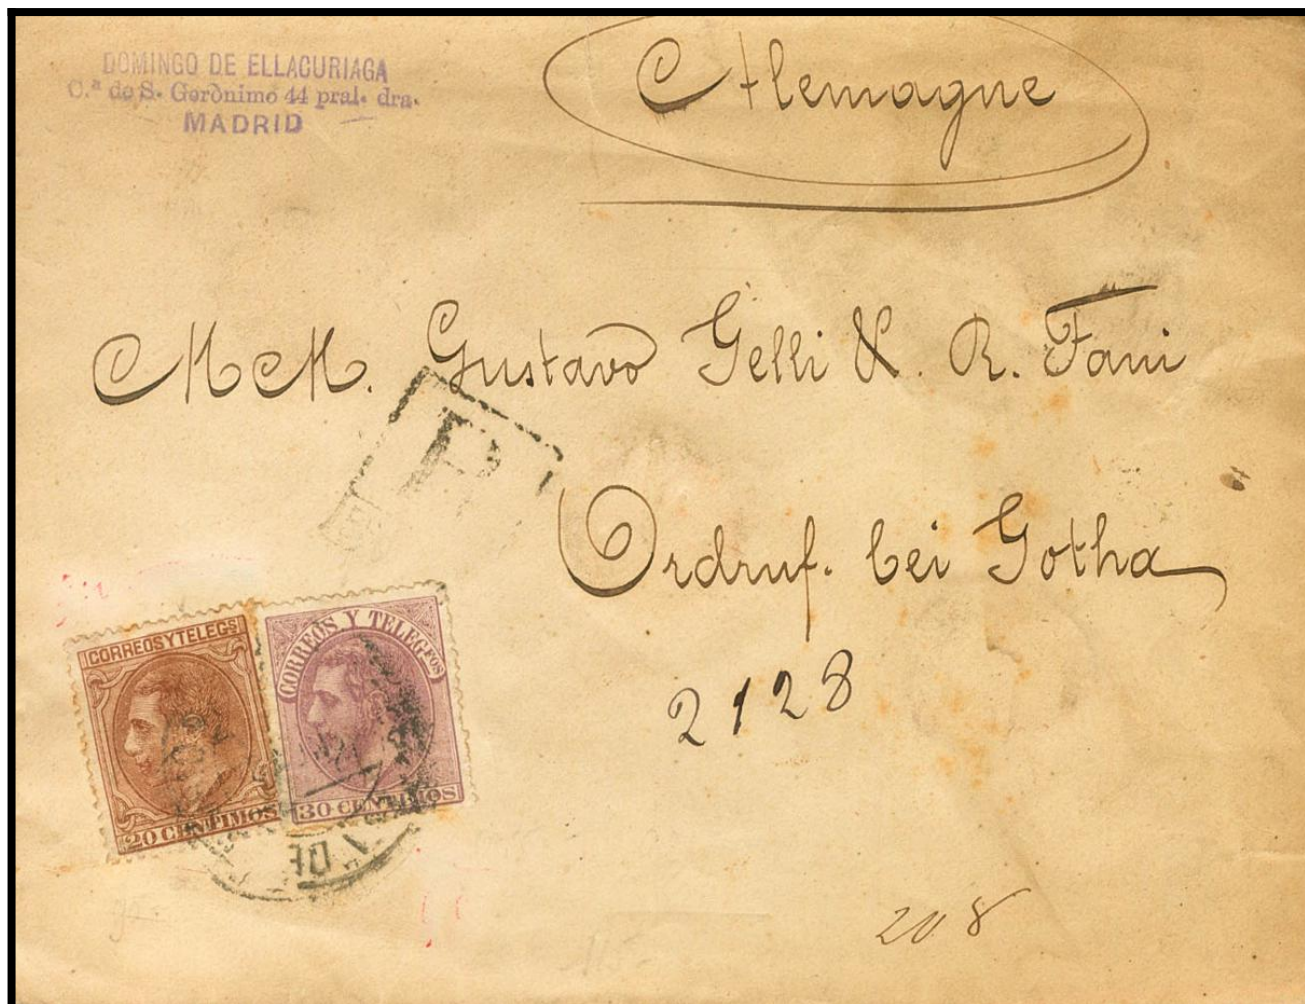 DOMINGO DE ELLACURIAGA
C.ª de S. Gerònimo 44 pral. dra.
MADRID
Allemagne
MM. Gustavo Gelli & R. Fani
P
Ordruf. bei Gotha
2128
CORREOS Y TELEGS
20 CENTIMOS
CORREOS Y TELEG.FOS
30 CENTIMOS
DE
208